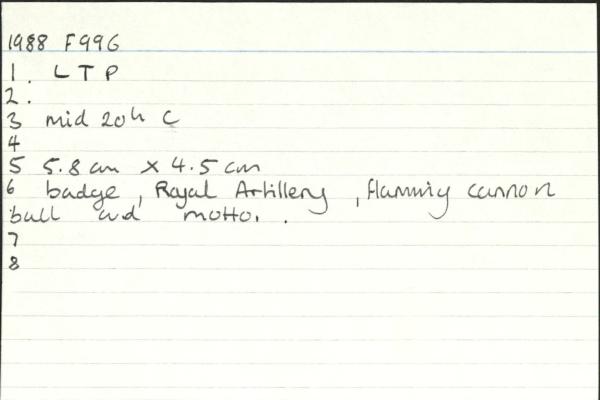 1988 F996
1. LTP
2.
3 mid 20th C
4
5 5.8 cm x 4.5 cm
6 badge, Royal Artillery, flaming cannon
ball and motto..
7
8